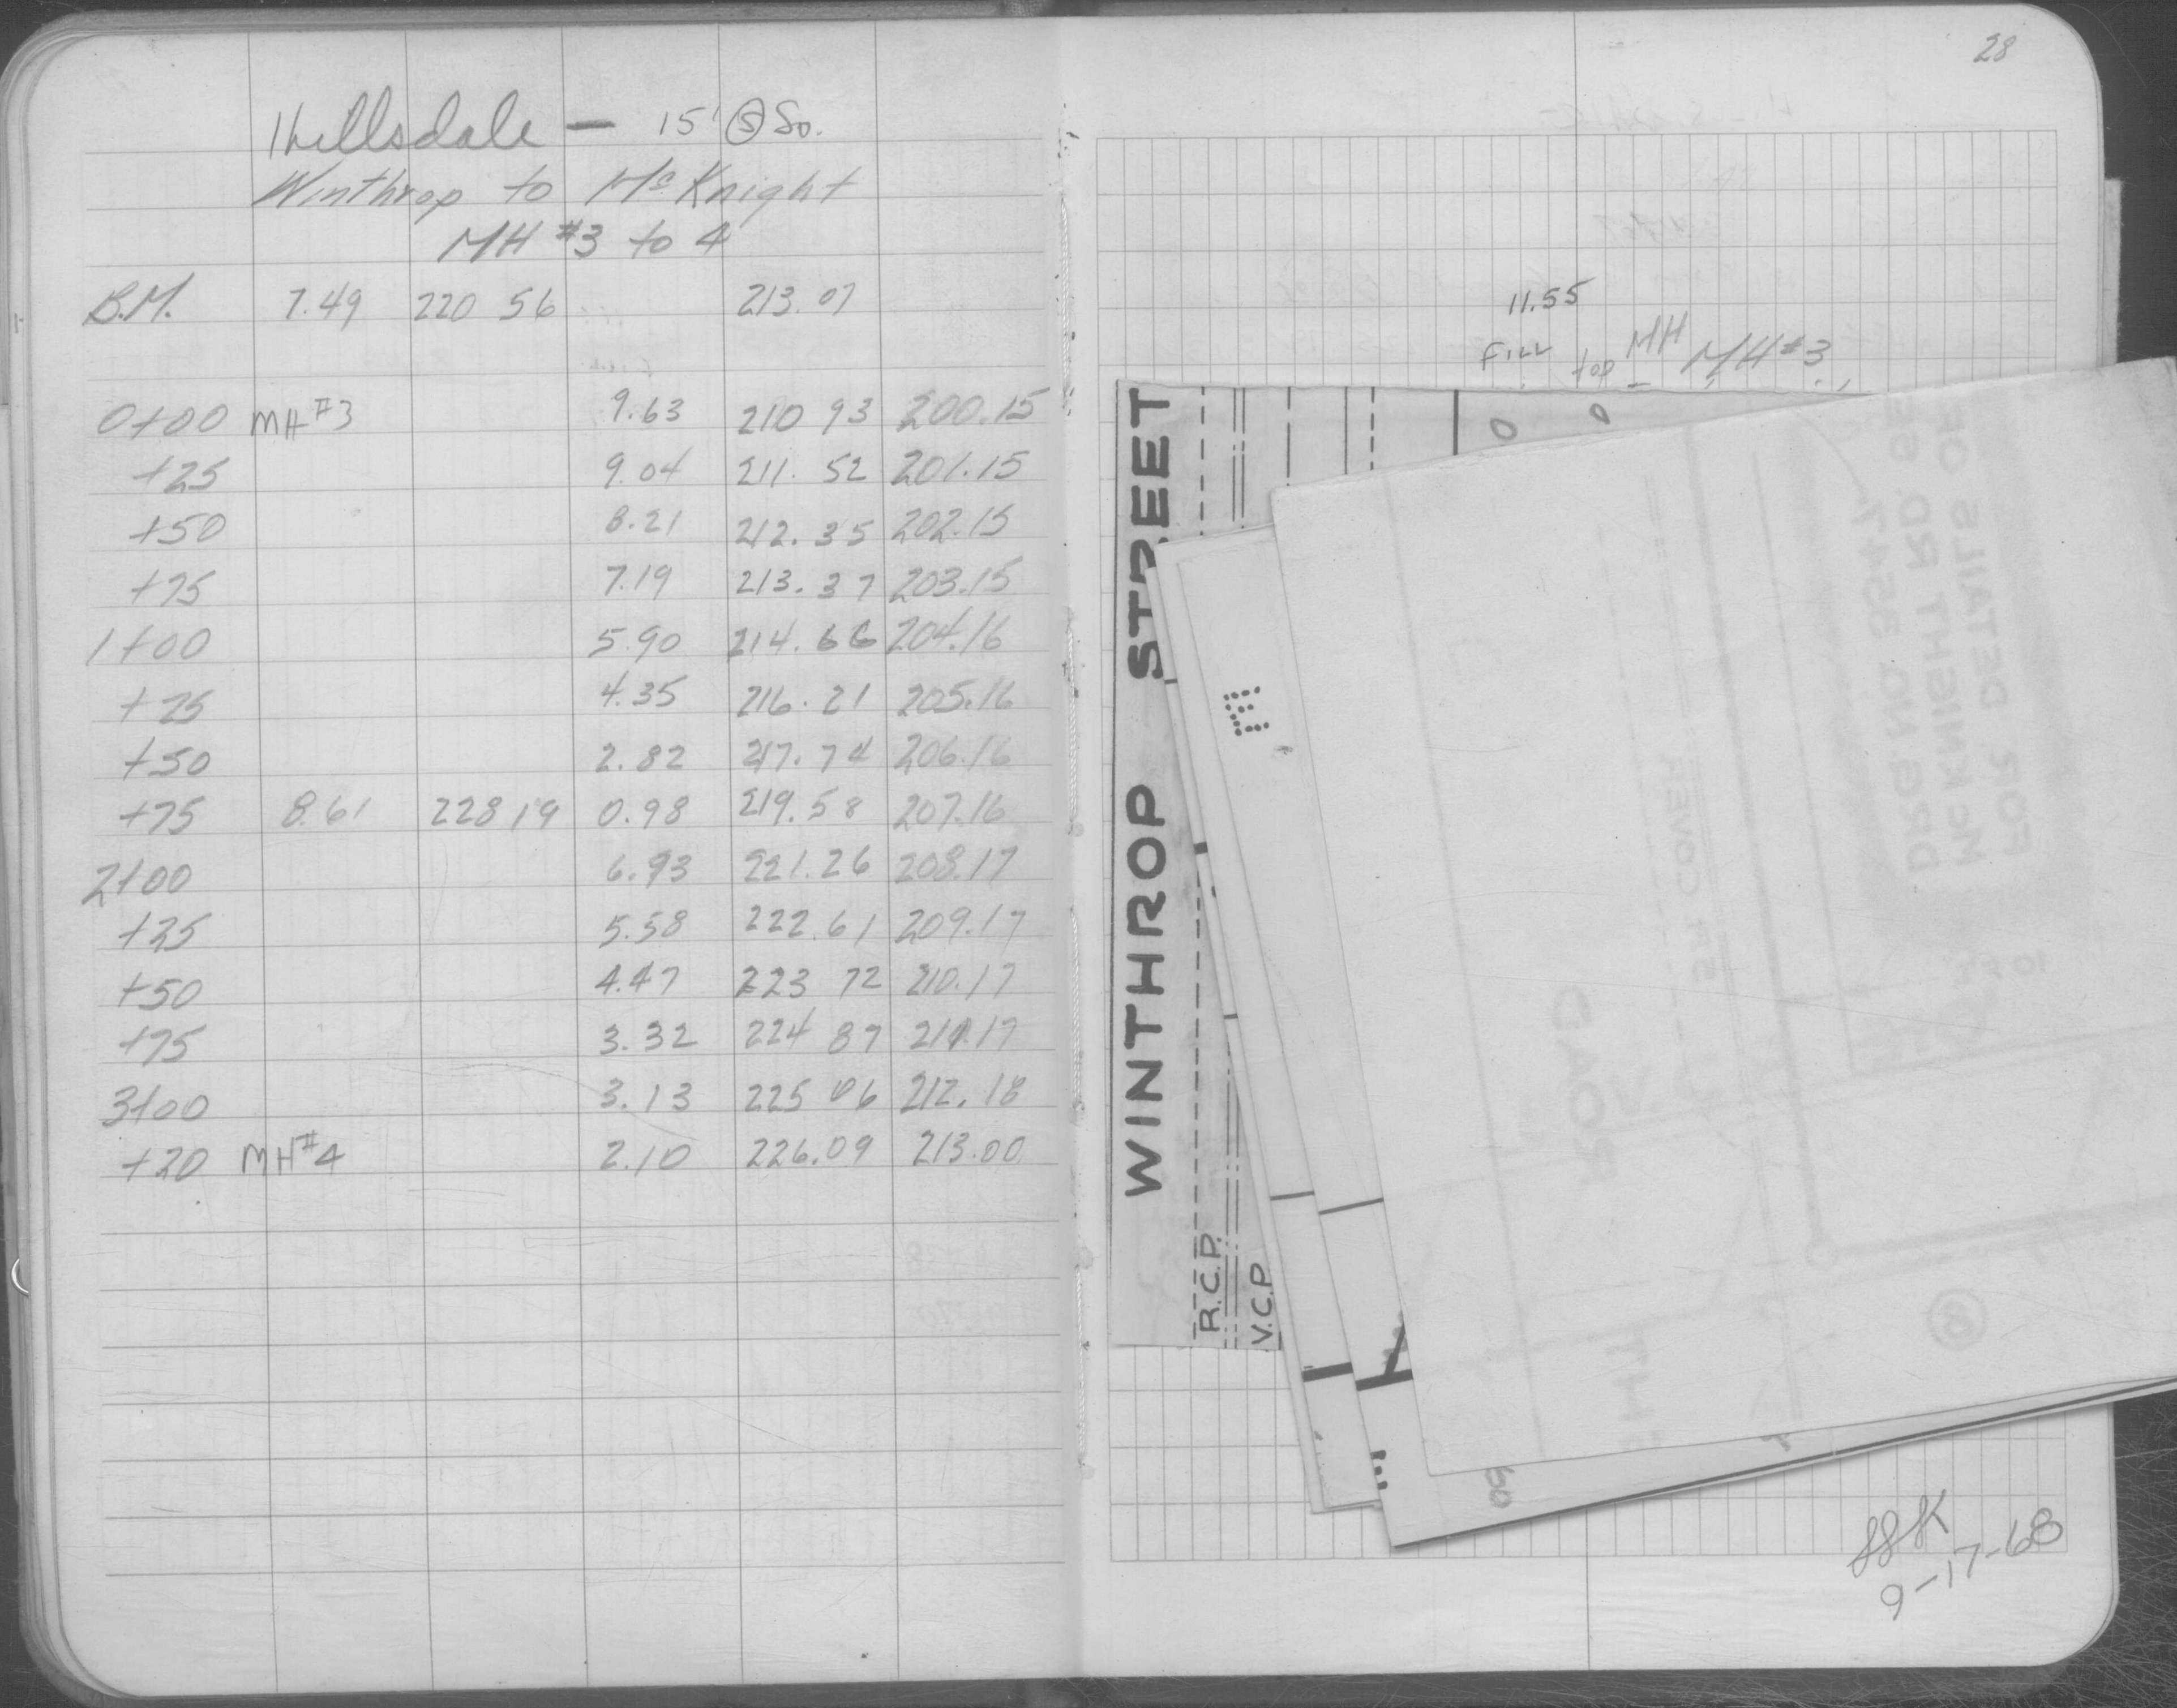 Hillsdale — 15' Ⓢ So.
Winthrop to McKnight
MH #3 to 4
B.M. 7.49 220 56 213.07
0+00 MH #3 9.63 210 93 200.15
+25 9.04 211.52 201.15
+50 8.21 212.35 202.15
+75 7.19 213.37 203.15
1+00 5.90 214.66 204.16
+25 4.35 216.21 205.16
+50 2.82 217.74 206.16
+75 8.61 228 19 0.98 219.58 207.16
2+00 6.93 221.26 208.17
+25 5.58 222.61 209.17
+50 4.47 223 72 210.17
+75 3.32 224 87 211.17
3+00 3.13 225 06 212.18
+20 MH #4 2.10 226.09 213.00
28
11.55
FILL top MH MH #3
WINTHROP STREET
R.C.P.
V.C.P.
FOR DETAILS OF
McKNIGHT RD. SE
DRG. NO. 3547
SR COVER
ROAD
9-17-68